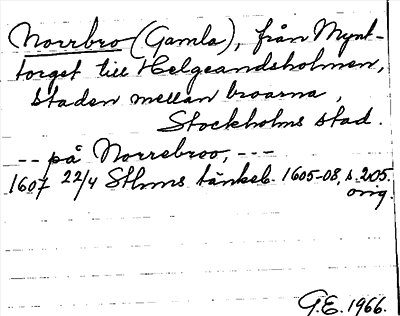 Norrbro (Gamla), från Mynt-
torget till Helgeandsholmen,
Staden mellan broarna,
Stockholms stad.
-- på Norrebroo, ---
1607 22/4 Sthms tänkeb. 1605-08, s. 205.
orig.
G.E. 1966.